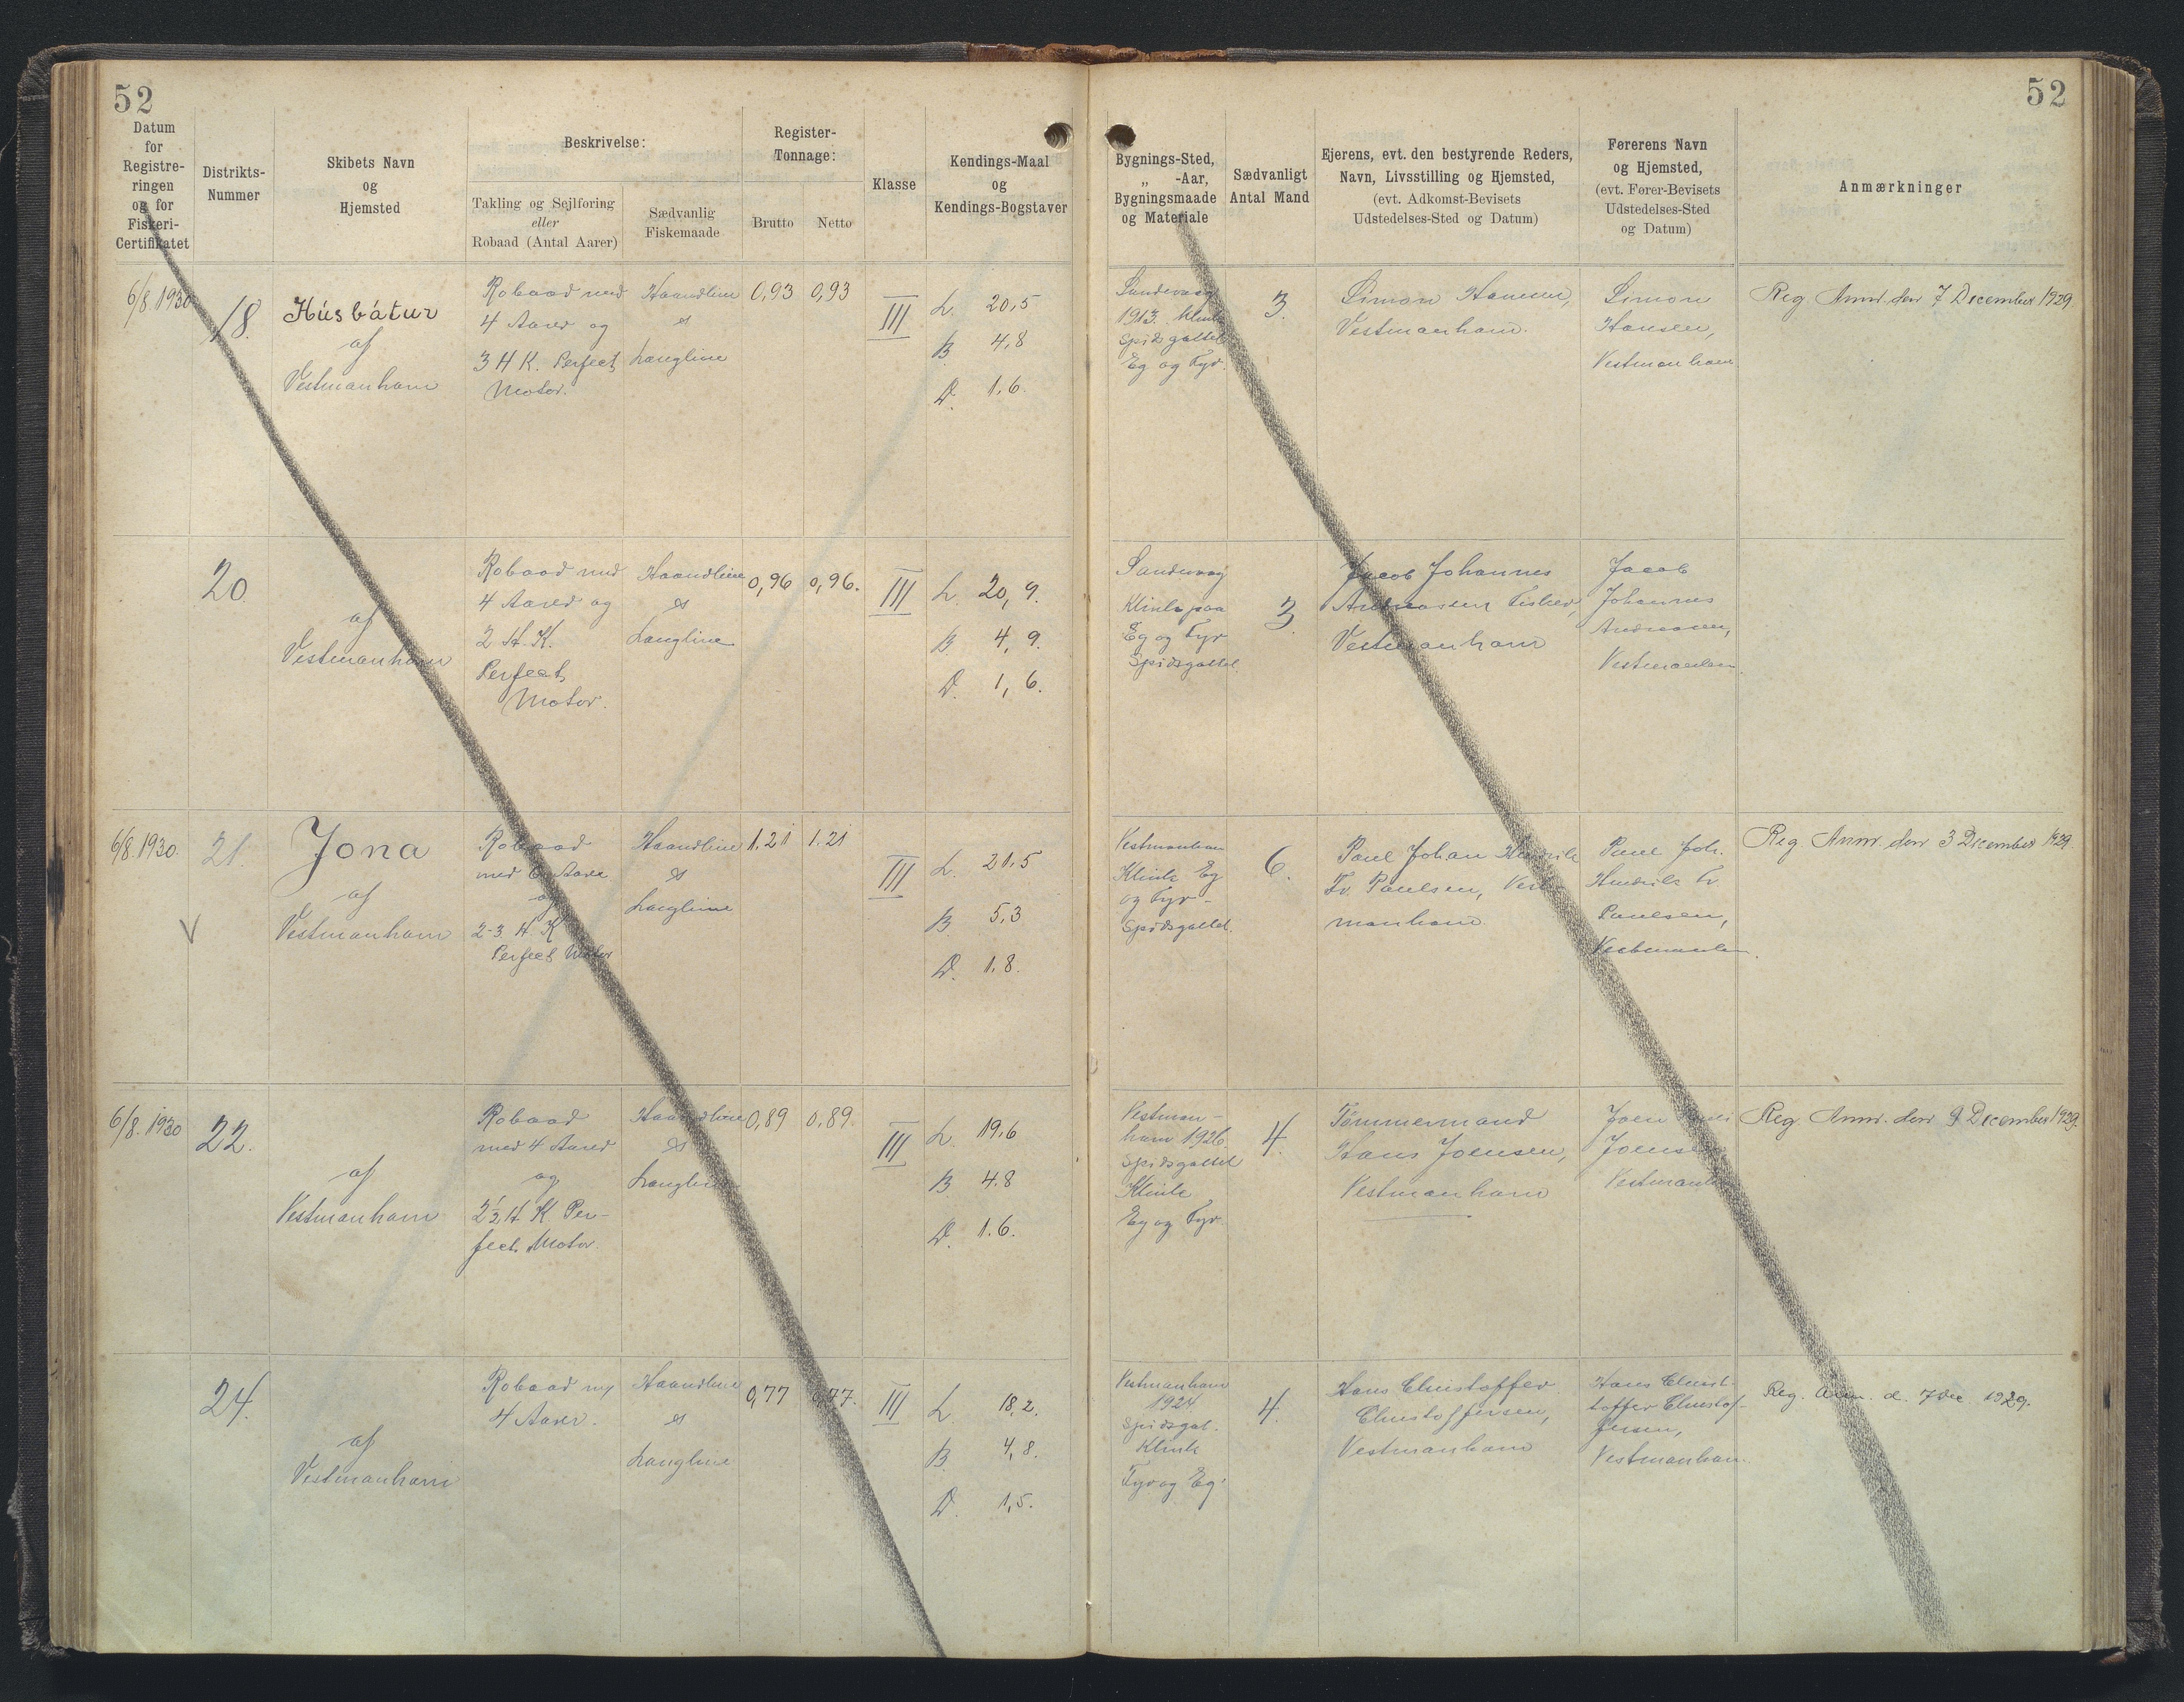 52
52
Datum
for
Registre-
ringen
og for
Fiskeri-
Certifikatet
Distrikts-
Nummer
Skibets Navn
og
Hjemsted
Beskrivelse:
Takling og Sejlføring
eller
Robaad (Antal Aarer)
Sædvanlig
Fiskemaade
Register-
Tonnage:
Brutto
Netto
Klasse
Kendings-Maal
og
Kendings-Bogstaver
Bygnings-Sted,
„ -Aar,
Bygningsmaade
og Materiale
Sædvanligt
Antal Mand
Ejerens, evt. den bestyrende Reders,
Navn, Livsstilling og Hjemsted,
(evt. Adkomst-Bevisets
Udstedelses-Sted og Datum)
Førerens Navn
og Hjemsted,
(evt. Fører-Bevisets
Udstedelses-Sted
og Datum)
Anmærkninger
6/8 1930
18.
Húsbátur
af
Vestmanhavn
Robaad med
4 Aarer og
3 H K. Perfect
Motor.
Haandline
&
Langline
0,93
0,93
III
L. 20,5
B. 4,8
D. 1,6.
Sandevaag
1913. Klink
Spidsgattet
Eg og Fyr.
3.
Simon Hansen,
Vestmanhavn.
Simon
Hansen,
Vestmanhavn
Reg Anm. den 7 December 1929.
20.
af
Vestmanhavn
Robaad med
4 Aarer og
2 H. K.
Perfect
Motor.
Haandline
&
Langline
0,96
0,96.
III
L. 20,9.
B. 4,9.
D. 1,6.
Sandevaag
Klink paa
Eg og Fyr
Spidsgattet
3.
Jacob Johannes
Andreassen Fisker,
Vestmanhavn
Jacob
Johannes
Andreasen,
Vestmanhavn
6/8.1930.
21.
Jona
af
Vestmanhavn
Robaad
med 6 Aarer
og
2-3 H. K
Perfect Motor
Haandline
&
Langline
1.21
1.21
III
L. 21,5
B. 5,3
D. 1.8.
Vestmanhavn
Klink Eg
og Fyr-
Spidsgattet.
6.
Poul Johan Hendrik
Fr. Poulsen, Vest-
manhavn
Poul Joh.
Hendrik Fr
Poulsen,
Vestmanhavn.
Reg Anm. den 3 December 1929.
6/8. 1930
22.
af
Vestmanhavn
Robaad
med 4 Aarer
og
2½ H. K Per-
fect Motor.
Haandline
&
Langline
0,89
0,89.
III
L. 19,6
B 4.8
D. 1.6.
Vestman-
havn 1926
Spidsgattet
Klink
Eg og Fyr.
4.
Tømmermand
Hans Joensen,
Vestmanhavn
Joen
Joensen
Vestmanh
Reg Anm. den 9 December 1929.
24.
af
Vestmanhavn
Robaad m/
4 Aarer.
Haandline
&
Langline
0,77
0,77.
III
L. 18,2.
B. 4,8.
D. 1,5.
Vestmanhavn
1924
Spidsgat.
Klink
Fyr og Eg.
4.
Hans Christoffer
Christoffersen,
Vestmanhavn
Hans Christ-
toffer Christof-
fersen,
Vestmanhavn.
Reg. Anm. d. 7 Dec 1929.